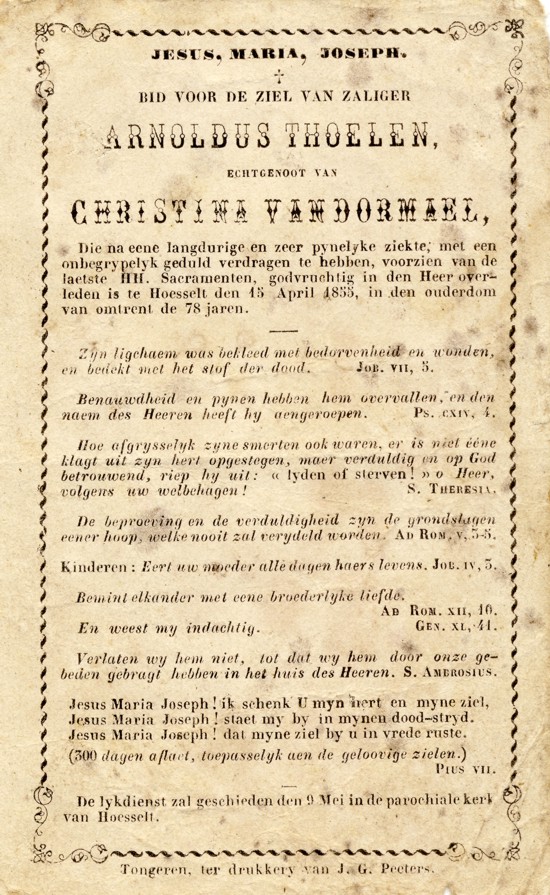 JESUS, MARIA, JOSEPH.
†
BID VOOR DE ZIEL VAN ZALIGER
ARNOLDUS THOELEN,
ECHTGENOOT VAN
CHRISTINA VANDORMAEL,
Die na eene langdurige en zeer pynelyke ziekte, met een
onbegrypelyk geduld verdragen te hebben, voorzien van de
laetste HH. Sacramenten, godvruchtig in den Heer over-
leden is te Hoesselt den 15 April 1855, in den ouderdom
van omtrent de 78 jaren.
Zyn ligchaem was bekleed met bedorvenheid en wonden,
en bedekt met het stof der dood. JOB. VII, 5.
Benauwdheid en pynen hebben hem overvallen, en den
naem des Heeren heeft hy aengeroepen. PS. CXIV, 4.
Hoe afgrysselyk zyne smerten ook waren, er is niet ééne
klagt uit zyn hert opgestegen, maer verduldig en op God
betrouwend, riep hy uit: « lyden of sterven! » o Heer,
volgens uw welbehagen! S. THERESIA.
De beproeving en de verduldigheid zyn de grondslagen
eener hoop, welke nooit zal verydeld worden. AD ROM. V, 3-5.
Kinderen : Eert uw moeder alle dagen haers levens. JOB. IV, 3.
Bemint elkander met eene broederlyke liefde.
AD ROM. XII, 10.
En weest my indachtig. GEN. XL, 41.
Verlaten wy hem niet, tot dat wy hem door onze ge-
beden gebragt hebben in het huis des Heeren. S. AMBROSIUS.
Jesus Maria Joseph! ik schenk U myn hert en myne ziel,
Jesus Maria Joseph! staet my by in mynen dood-stryd.
Jesus Maria Joseph! dat myne ziel by u in vrede ruste.
(300 dagen aflaet, toepasselyk aen de geloovige zielen.)
PIUS VII.
De lykdienst zal geschieden den 9 Mei in de parochiale kerk
van Hoesselt.
Tongeren, ter drukkery van J. G. Peeters.